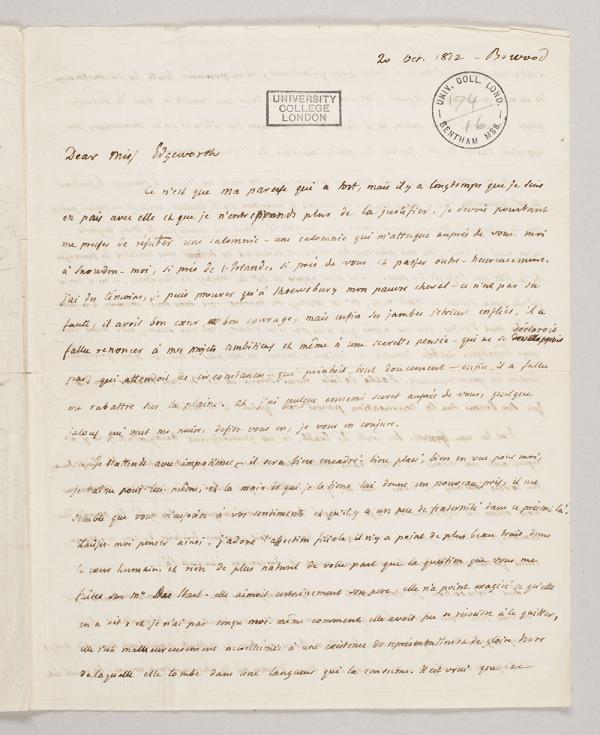 20 Oct. 1812 - Bowood
UNIVERSITY
COLLEGE
LONDON
UNIV. COLL. LOND.
174
16
BENTHAM MSS.
Dear Miss Edgeworth
Ce n'est que ma paresse qui a tort, mais il y a longtemps que je suis
en paix avec elle et que je n'entreprends plus de la justifier. je devois pourtant
me presser de réfuter une calomnie - une calomnie qui m'attaque auprès de vous. moi
à Snowdon - moi, si près de l'Irlande, si près de vous et passer outre - heureusement
j'ai des témoins, je puis prouver qu'à Shrewsbury mon pauvre cheval - ce n'est pas sa
faute, il avoit bon cœur bon courage, mais enfin ses jambes s'étoient enflées, il a
fallu renoncer à mes projets ambitieux et même à une secrette pensée - qui ne se déclaroit
pas, qui attendoit les circonstances - que pointoit tout doucement - enfin, il a fallu
me rabattre sur la plaine. ah, j'ai quelque ennemi secret auprès de vous, quelque
jaloux qui veut me nuire, defiez vous en, je vous en conjure.
Je l'attends avec impatience, il sera bien encadré, bien placé, bien en vue pour moi,
je l'aime pour lui même, et la main de qui je le tiens lui donne un nouveau prix, il me
semble que vous m'associez à vos sentimens et qu'il y a un peu de fraternité dans ce présent là.
Laissez moi penser ainsi, j'adore l'affection filiale, il n'y a point de plus beau trait dans
le cœur humain, et rien de plus naturel de votre part que la question que vous me
faites sur Me De Stael - elle aimoit certainement son père, elle n'a point exagéré ce qu'elle
en a dit, et je n'ai pas conçu moi même comment elle avoit pu se résoudre à le quitter,
elle s'est malheureusement accoutumée à une existence de représentation et de gloire hors
de laquelle elle tombe dans une langueur qui la consume. Il est vrai que ce